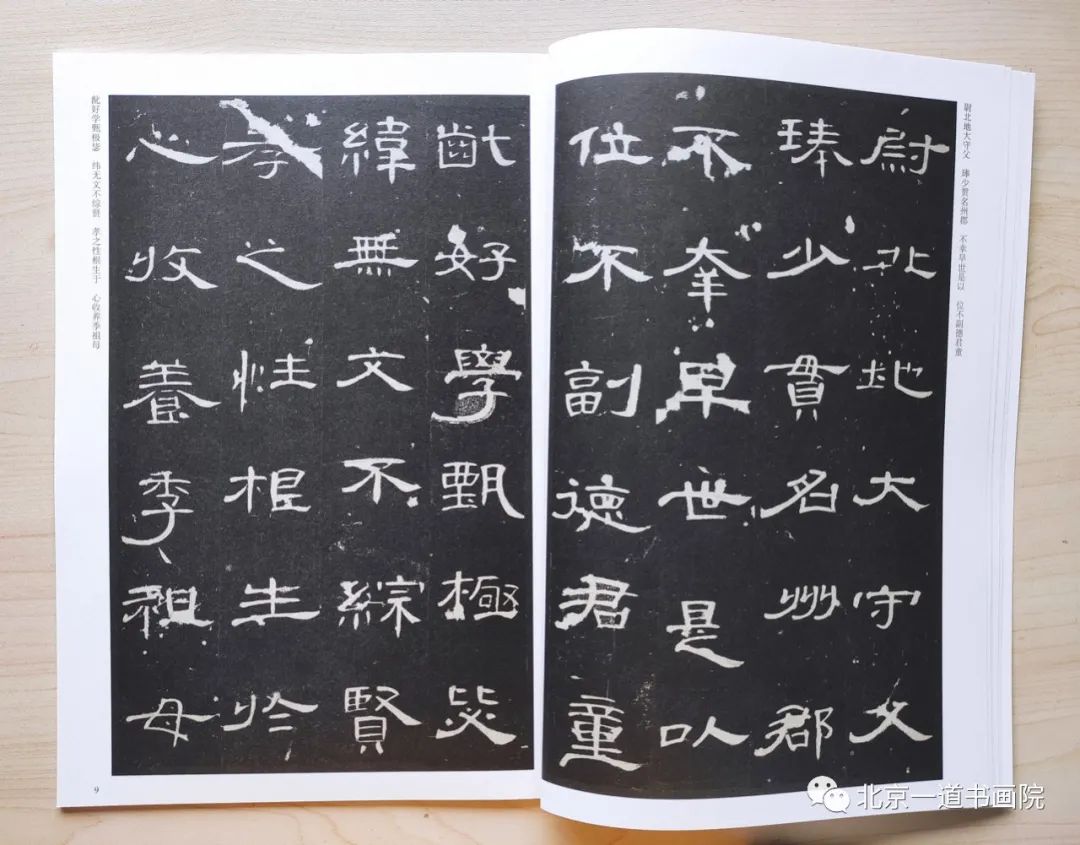 尉北地大守父　琫少贯名州郡　不幸早世是以　位不副德君童
尉北地大守父
琫少貫名州郡
不幸早世是以
位不副德君童
齔好學甄極毖
緯無文不綜賢
孝之性根生於
心收養季祖母
龀好学甄极毖　纬无文不综贤　孝之性根生于　心收养季祖母
9
北京一道书画院